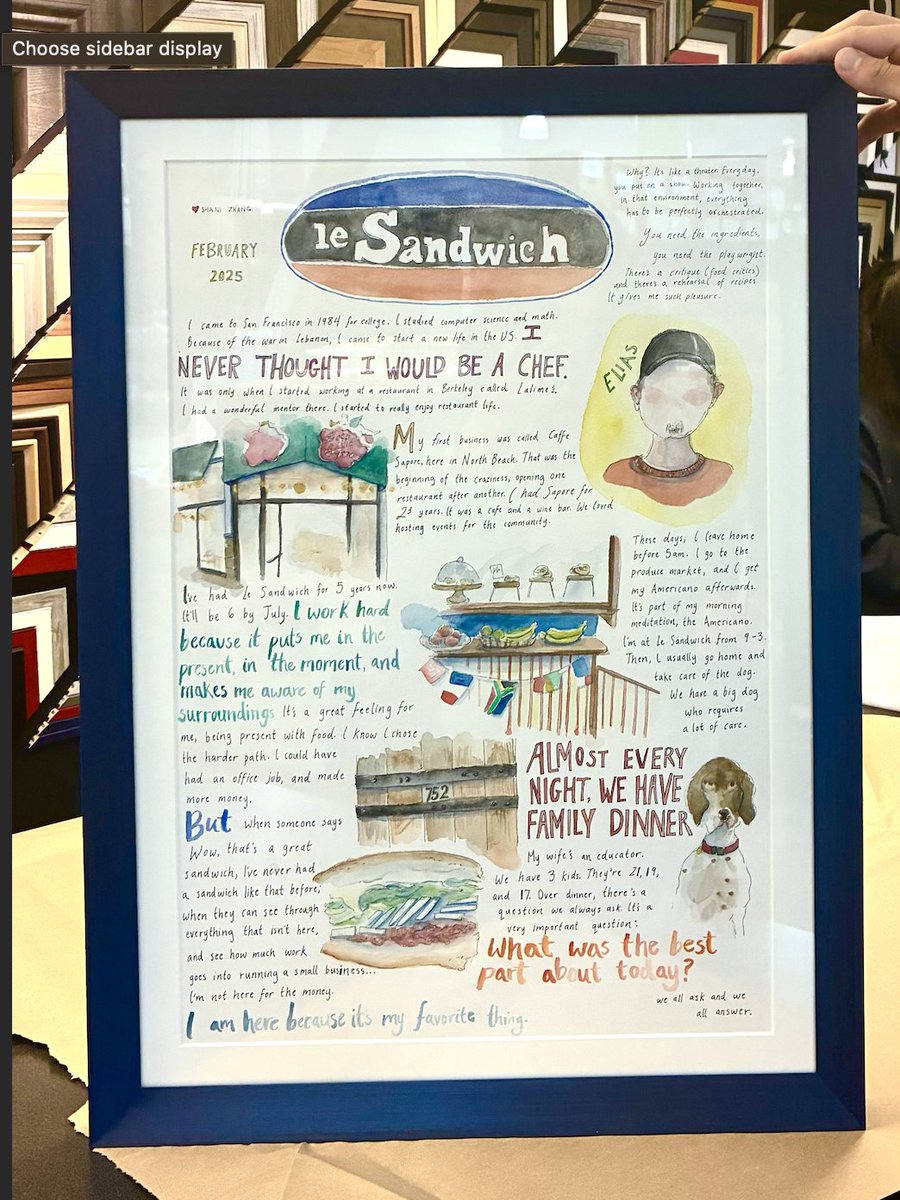 Choose sidebar display
SHANI ZHANG
FEBRUARY
2025
le Sandwich
Why? It's like a theater. Everyday,
you put on a show. Working together,
in that environment, everything
has to be perfectly orchestrated.
You need the ingredients,
you need the playwright.
There's a critique (food critics)
and there's a rehearsal of recipes.
It gives me such pleasure.
I came to San Francisco in 1984 for college. I studied computer science and math.
Because of the war in Lebanon, I came to start a new life in the US. I
NEVER THOUGHT I WOULD BE A CHEF.
It was only when I started working at a restaurant in Berkeley called Lalimes.
I had a wonderful mentor there. I started to really enjoy restaurant life.
ELIAS
My first business was called Caffe
Sapore, here in North Beach. That was the
beginning of the craziness, opening one
restaurant after another. I had Sapore for
23 years. It was a cafe and a wine bar. We loved
hosting events for the community.
I've had le Sandwich for 5 years now.
It'll be 6 by July. I work hard
because it puts me in the
present, in the moment, and
makes me aware of my
surroundings It's a great feeling for
me, being present with food. I know I chose
the harder path. I could have
had an office job, and made
more money.
But when someone says
Wow, that's a great
sandwich, I've never had
a sandwich like that before,
when they can see through
everything that isn't here,
and see how much work
goes into running a small business...
I'm not here for the money.
I am here because it's my favorite thing.
These days, I leave home
before 5am. I go to the
produce market, and I get
my Americano afterwards.
It's part of my morning
meditation, the Americano.
I'm at le Sandwich from 9-3.
Then, I usually go home and
take care of the dog.
We have a big dog
who requires
a lot of care.
752
ALMOST EVERY
NIGHT, WE HAVE
FAMILY DINNER
My wife's an educator.
We have 3 kids. They're 21, 19,
and 17. Over dinner, there's a
question we always ask. It's a
very important question:
What was the best
part about today?
we all ask and we
all answer.